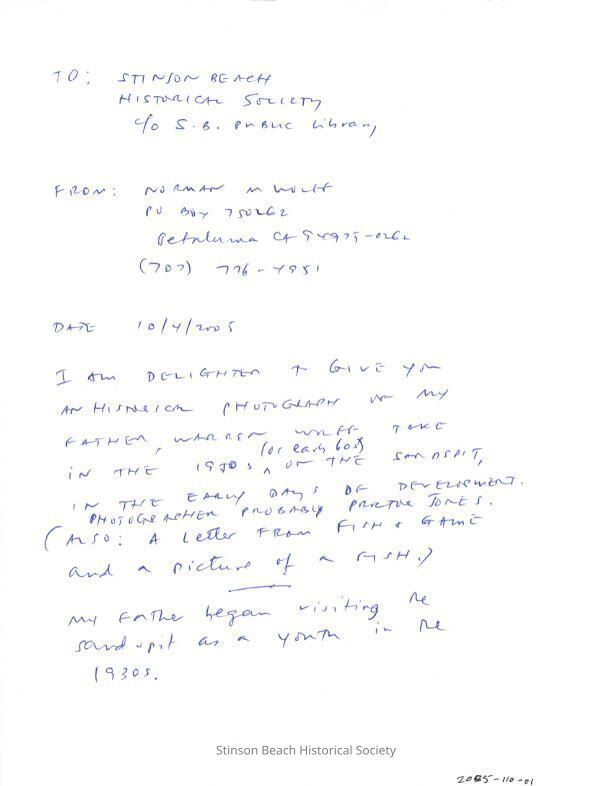 TO: STINSON BEACH
HISTORICAL SOCIETY
c/o S.B. PUBLIC Library
FROM: NORMAN M WOLFF
PO BOX 750262
Petaluma CA 94975-0262
(707) 776-4951
DATE 10/4/2005
I AM DELIGHTED to GIVE YOU
AN HISTORICAL PHOTOGRAPH OF MY
FATHER, WARREN WOLFF TAKE
(or early 60s)
IN THE 1950s ^ OF THE SANDSPIT,
IN THE EARLY DAYS OF DEVELOPMENT.
PHOTOGRAPHER PROBABLY PROCTOR JONES.
(ALSO: A Letter FROM FISH & GAME
and a picture of a FISH.)
My Father began visiting the
sandspit as a youth in the
1930s.
Stinson Beach Historical Society
2005-110-01